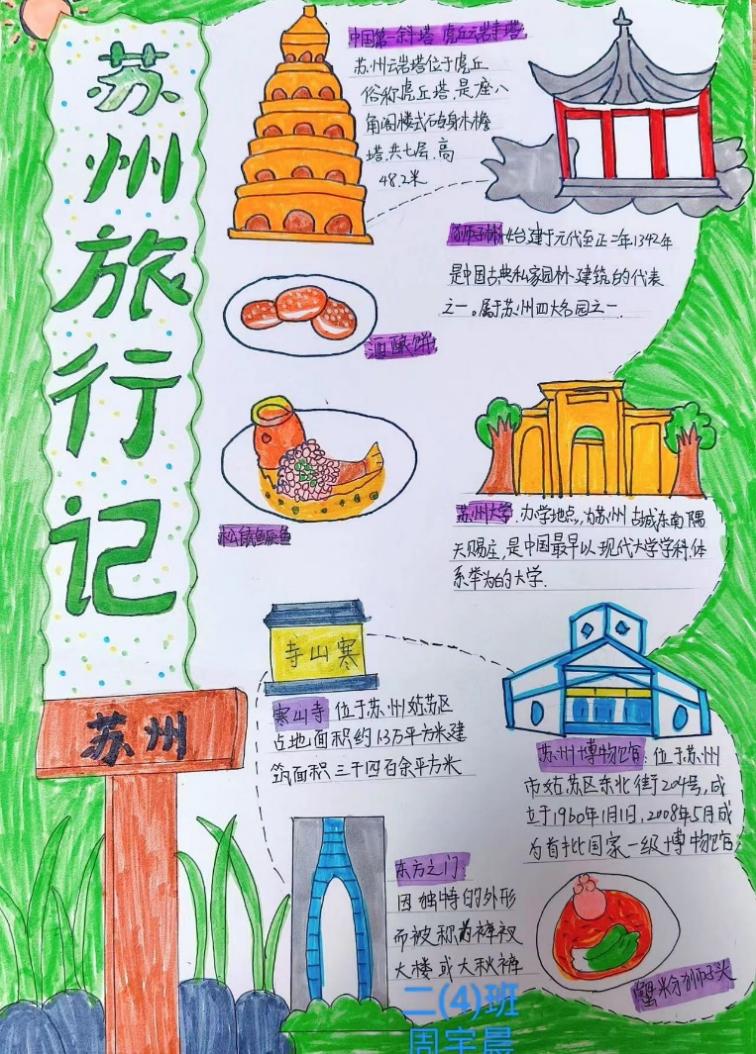 苏州旅行记
苏州
中国第一斜塔 虎丘云岩寺塔
苏州云岩塔位于虎丘
俗称虎丘塔，是座八
角阁楼式砖身木檐
塔，共七层，高
48.2米
狮子林始建于元代至正二年1342年
是中国古典私家园林建筑的代表
之一。属于苏州四大名园之一
酒酿饼
松鼠鳜鱼
苏州大学，办学地点，为苏州古城东南隅
天赐庄，是中国最早以现代大学学科，体
系举办的大学.
寺山寒
寒山寺 位于苏州姑苏区
占地面积约1.3万平方米建
筑面积三千四百余平方米
苏州博物馆：位于苏州
市姑苏区东北街204号，成
立于1960年1月1日，2008年5月成
为首批国家一级博物馆
东方之门
因独特的外形
而被称为裤衩
大楼或大秋裤
蟹粉狮子头
二(4)班
周宇晨